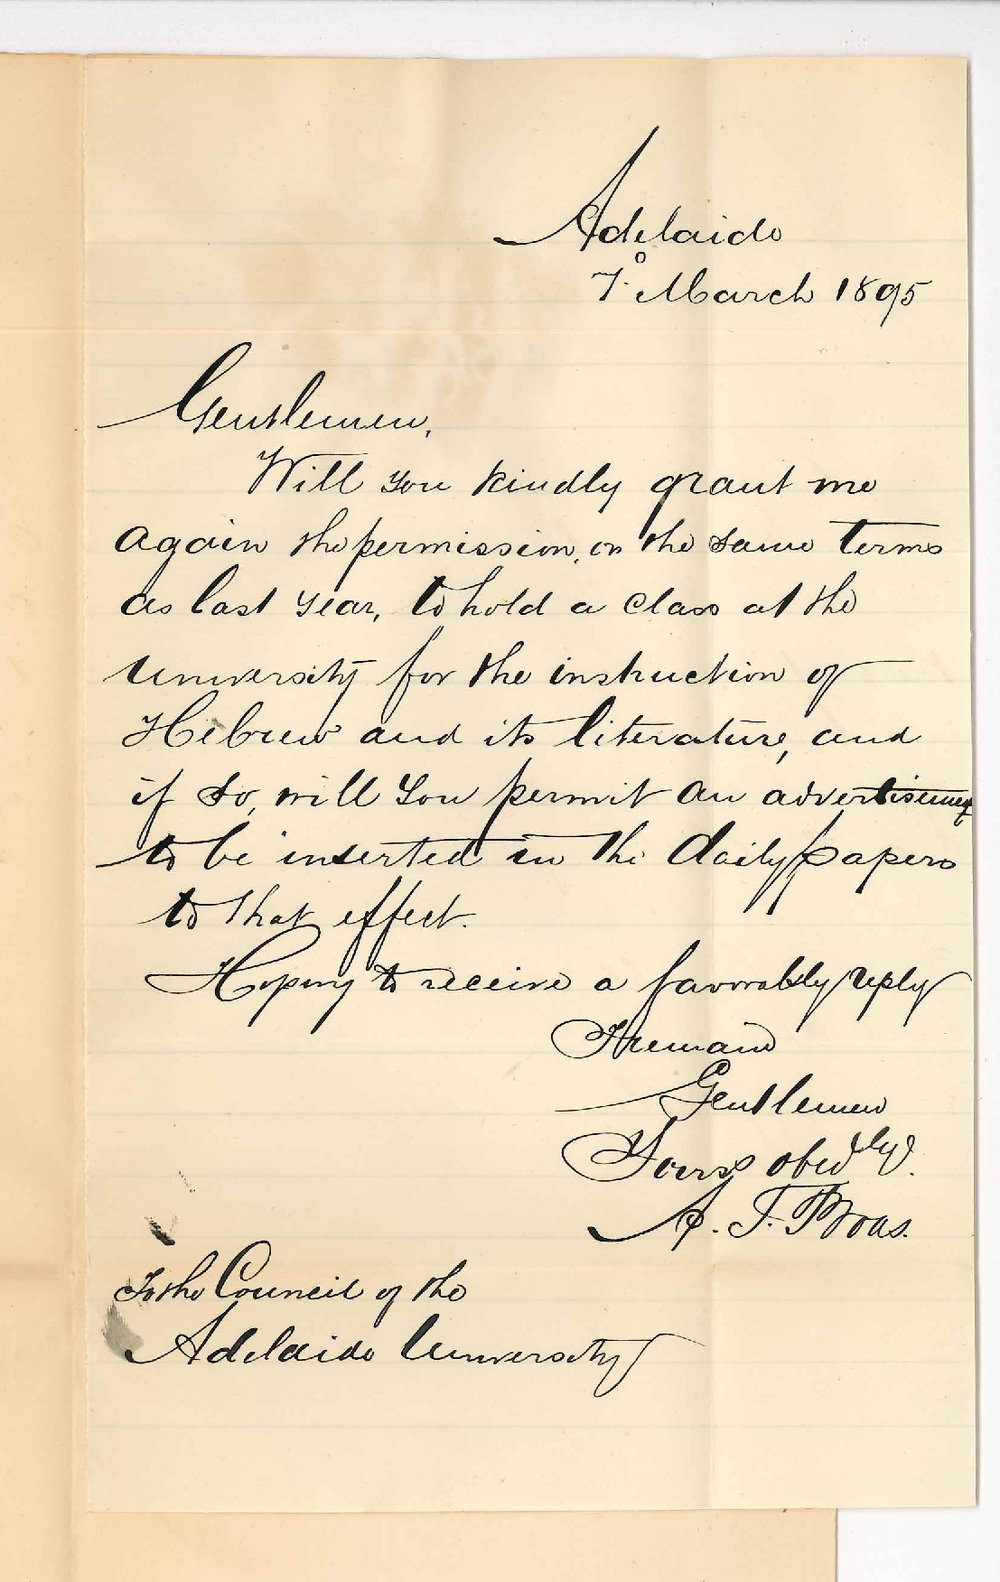 Adelaide
7° March 1895
Gentlemen,
Will you kindly grant me
again the permission, on the same terms
as last year, to hold a class at the
University for the instruction of
Hebrew and its literature, and
if so, will you permit an advertisement
to be inserted in the daily papers
to that effect.
Hoping to receive a favorably reply
I remain
Gentlemen
Yours obedtly.
A. T. Boas.
To the Council of the
Adelaide University